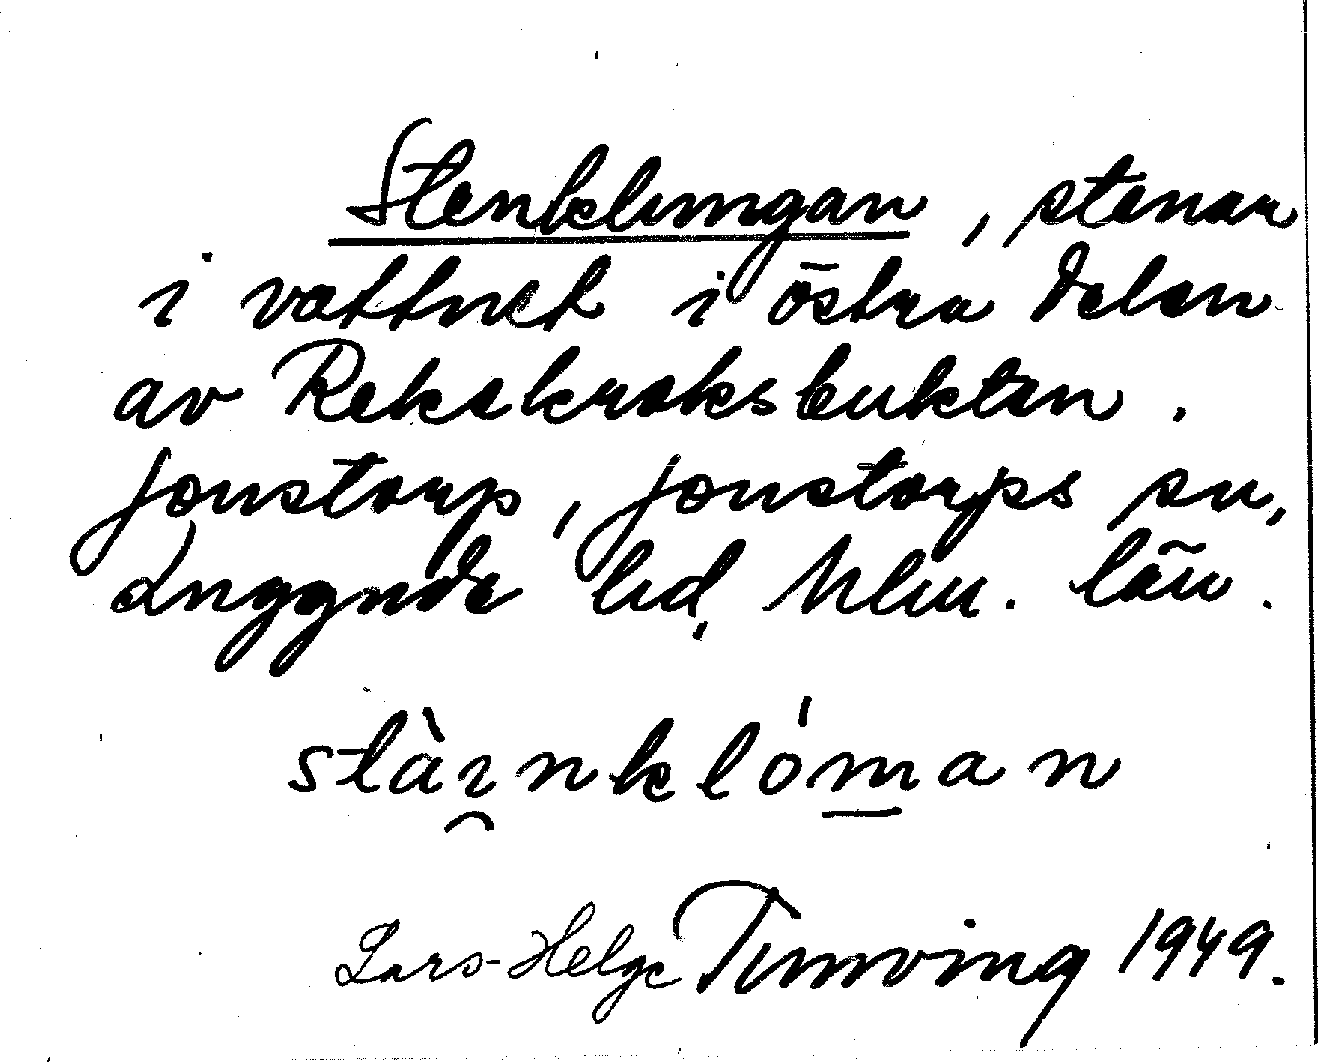 Stenklungan, stenar
i vattnet i östra delen
av Rekekroksbukten.
Jonstorp, Jonstorps sn,
Luggude hd, Mlm. län.
stàinklóman
Lars-Helge Tunving 1949.